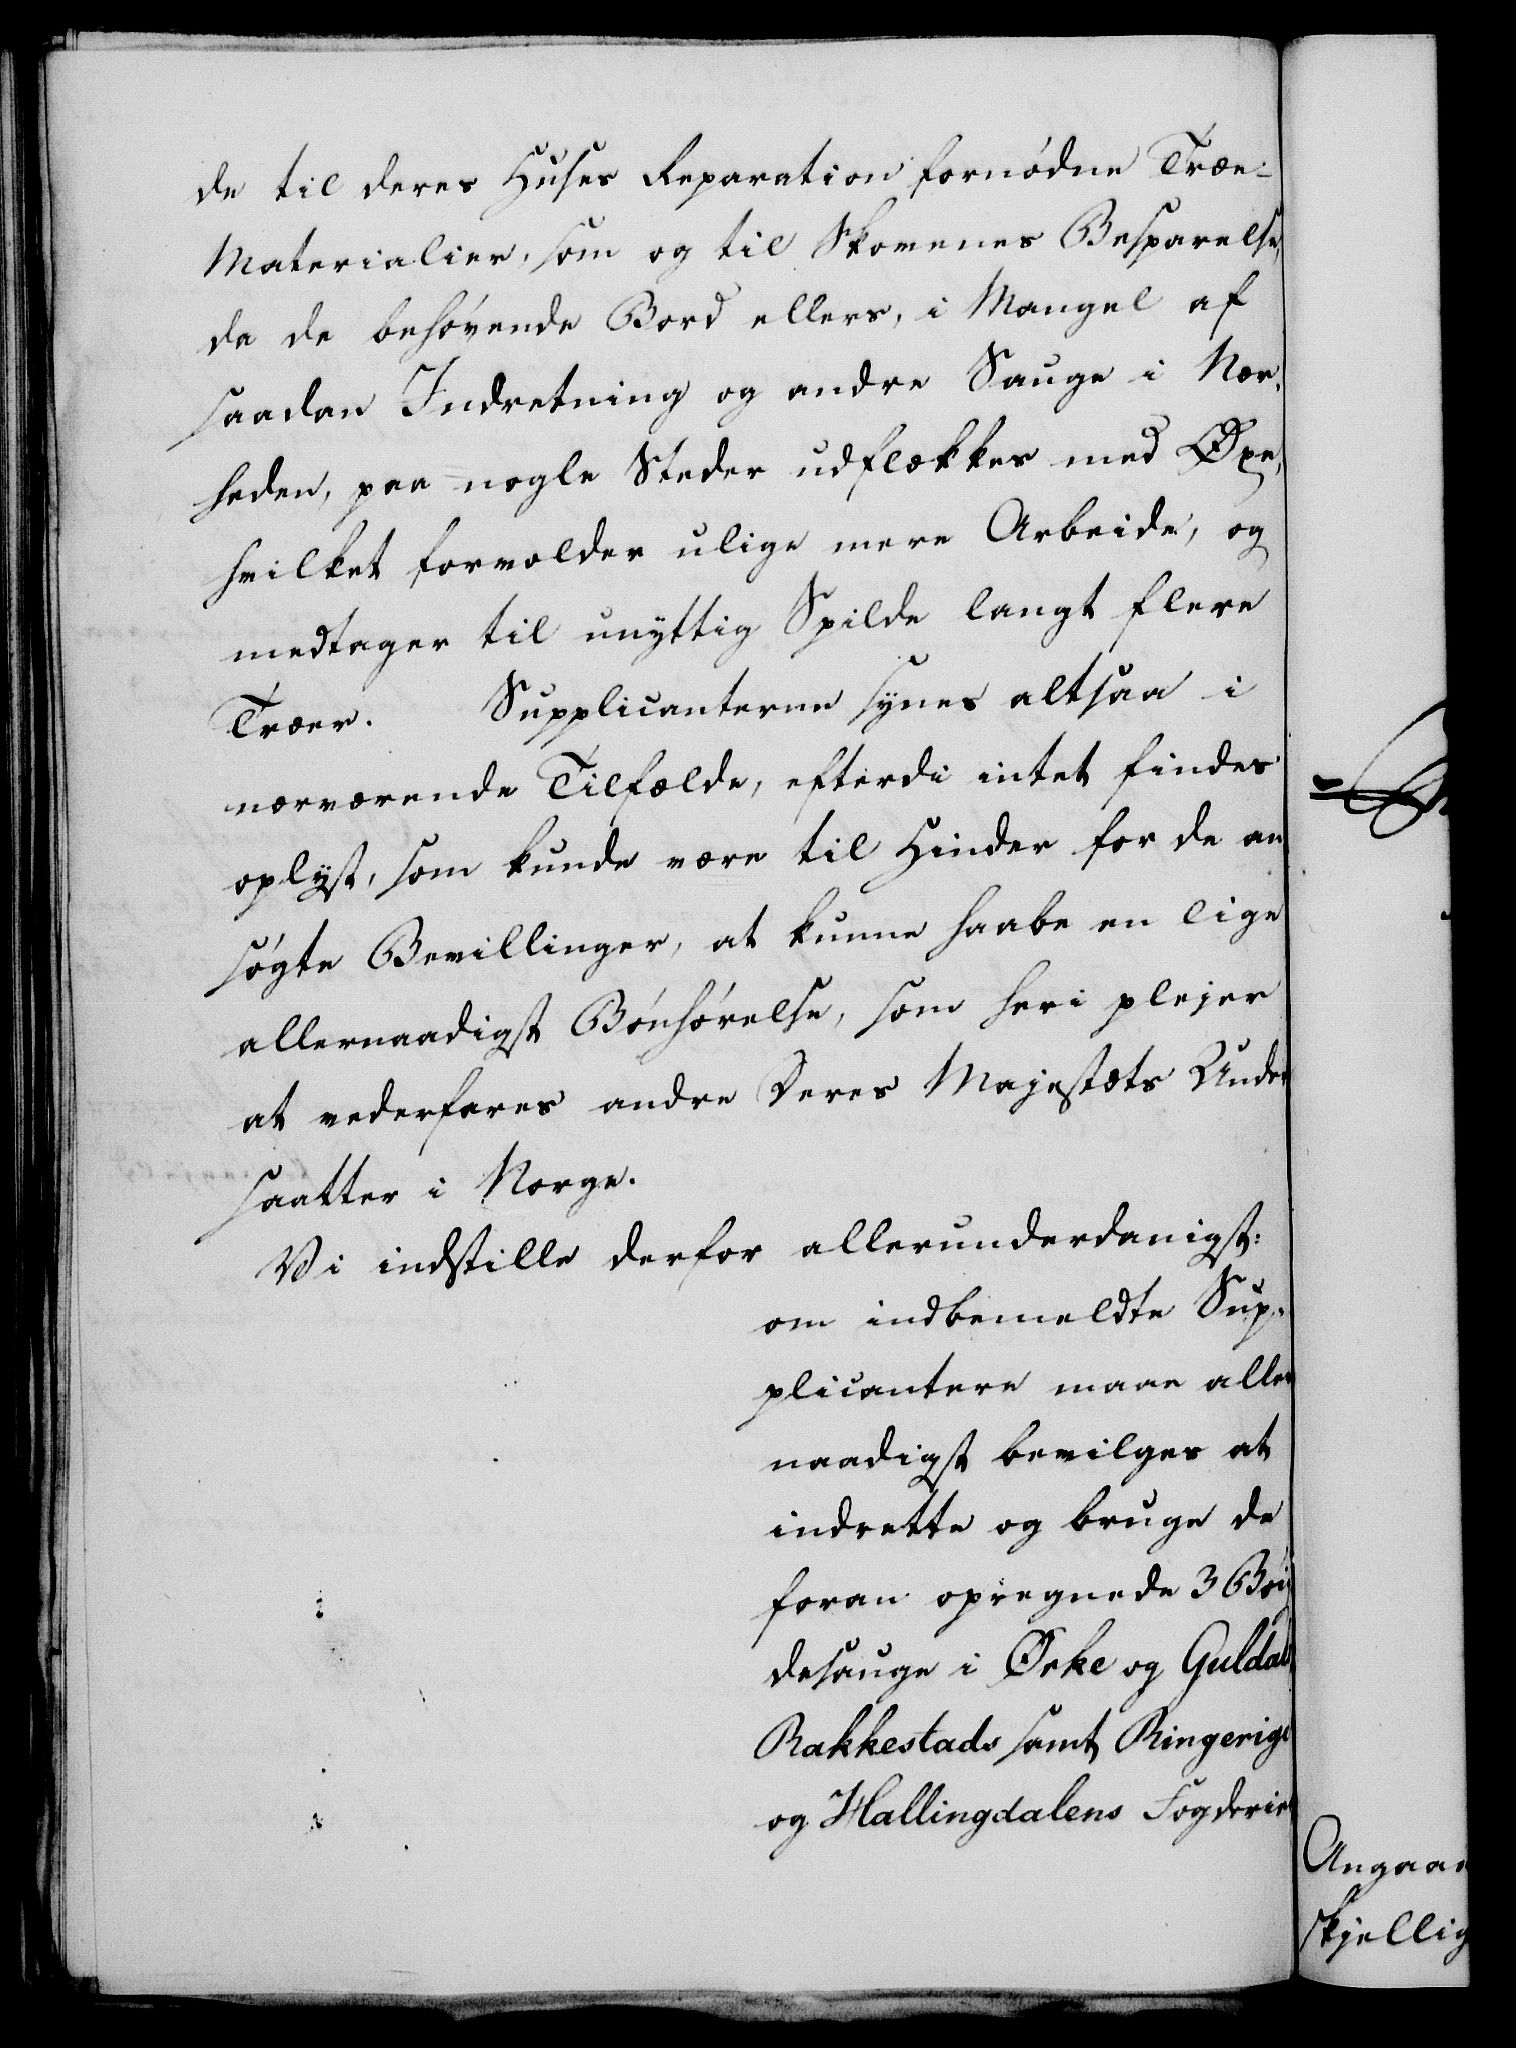 de til deres Huses Reparation fornødne Træe-
Materialier, som og til Skovenes Besparelse,
da de behøvende Bord ellers, i Mangel af
saadan Indretning og andre Sauge i Nær-
heden, paa nogle Steder udflækkes med Øxe,
hvilket forvolder ulige mere Arbeide, og
medtager til unyttig Spilde langt flere
Træer. Supplicanterne synes altsaa i
nærværende Tilfælde, efterdi intet findes
oplyst, som kunde være til Hinder for de an
søgte Bevillinger, at kunne haabe en lige
allernaadigst Bønhørelse, som heri plejer
at vederfares andre Deres Majestæts Under
saatter i Norge.
Vi indstille derfor allerunderdanigst:
om indbemeldte Sup-
plicantere maae aller
naadigst bevilges at
indrette og bruge de
foran opregnede 3 Bøi
desauge i Ørke og Guldals
Rakkestads samt Ringerige
og Hallingdalens Fogderier
Angaae
skjellig